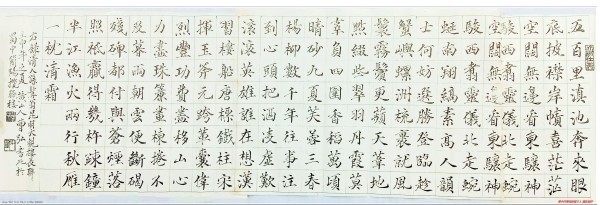 五百里滇池奔來眼
底披襟岸幘喜茫茫
空闊無邊看東驤神
駿西翥靈儀北走蜿
蜒南翔縞素高人韻
士何妨選勝登臨趁
蟹嶼螺洲梳裹就風
鬟霧鬢更蘋天葦地
點綴些翠羽丹霞莫
辜負四圍香稻萬頃
晴沙九夏芙蓉三春
楊柳數千年往事注
到心頭把酒凌虛歎
滾滾英雄誰在想漢
習樓船唐標鐵柱宋
揮玉斧元跨革囊偉
烈豐功費盡移山心
力盡珠簾畫棟捲不
及暮雨朝雲便斷碣
殘碑都付與蒼煙落
照祇贏得幾杵疎鐘
半江漁火兩行秋雁
一枕清霜
右錄清人孫髯翁昆明大觀樓長聯